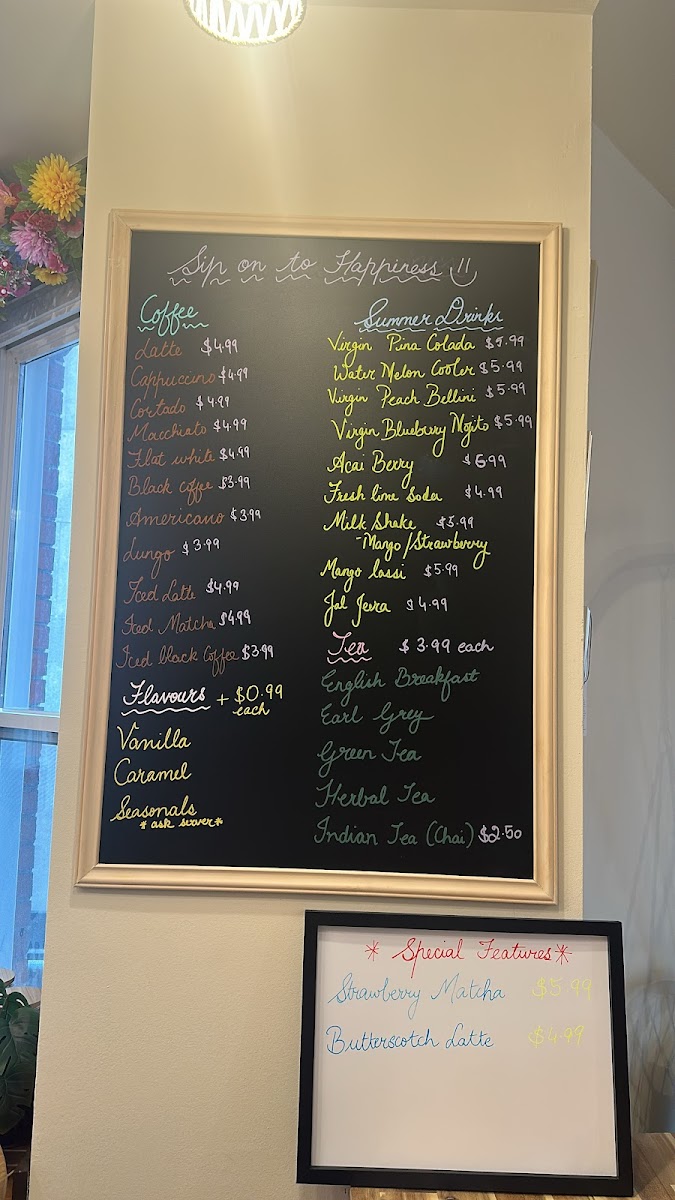 Sip on to Happiness
Coffee
Latte $4.99
Cappuccino $4.99
Cortado $4.99
Macchiato $4.99
Flat white $4.99
Black coffee $3.99
Americano $3.99
Lungo $3.99
Iced Latte $4.99
Iced Matcha $4.99
Iced black Coffee $3.99
Flavours + $0.99
each
Vanilla
Caramel
Seasonals
*ask server*
Summer Drinks
Virgin Pina Colada $5.99
Water Melon Cooler $5.99
Virgin Peach Bellini $5.99
Virgin Blueberry Mojito $5.99
Acai Berry $5.99
Fresh lime Soda $4.99
Milk Shake $5.99
-Mango/Strawberry
Mango lassi $5.99
Jal Jeera $4.99
Tea $3.99 each
English Breakfast
Earl Grey
Green Tea
Herbal Tea
Indian Tea (Chai) $2.50
* Special Features *
Strawberry Matcha $5.99
Butterscotch Latte $4.99